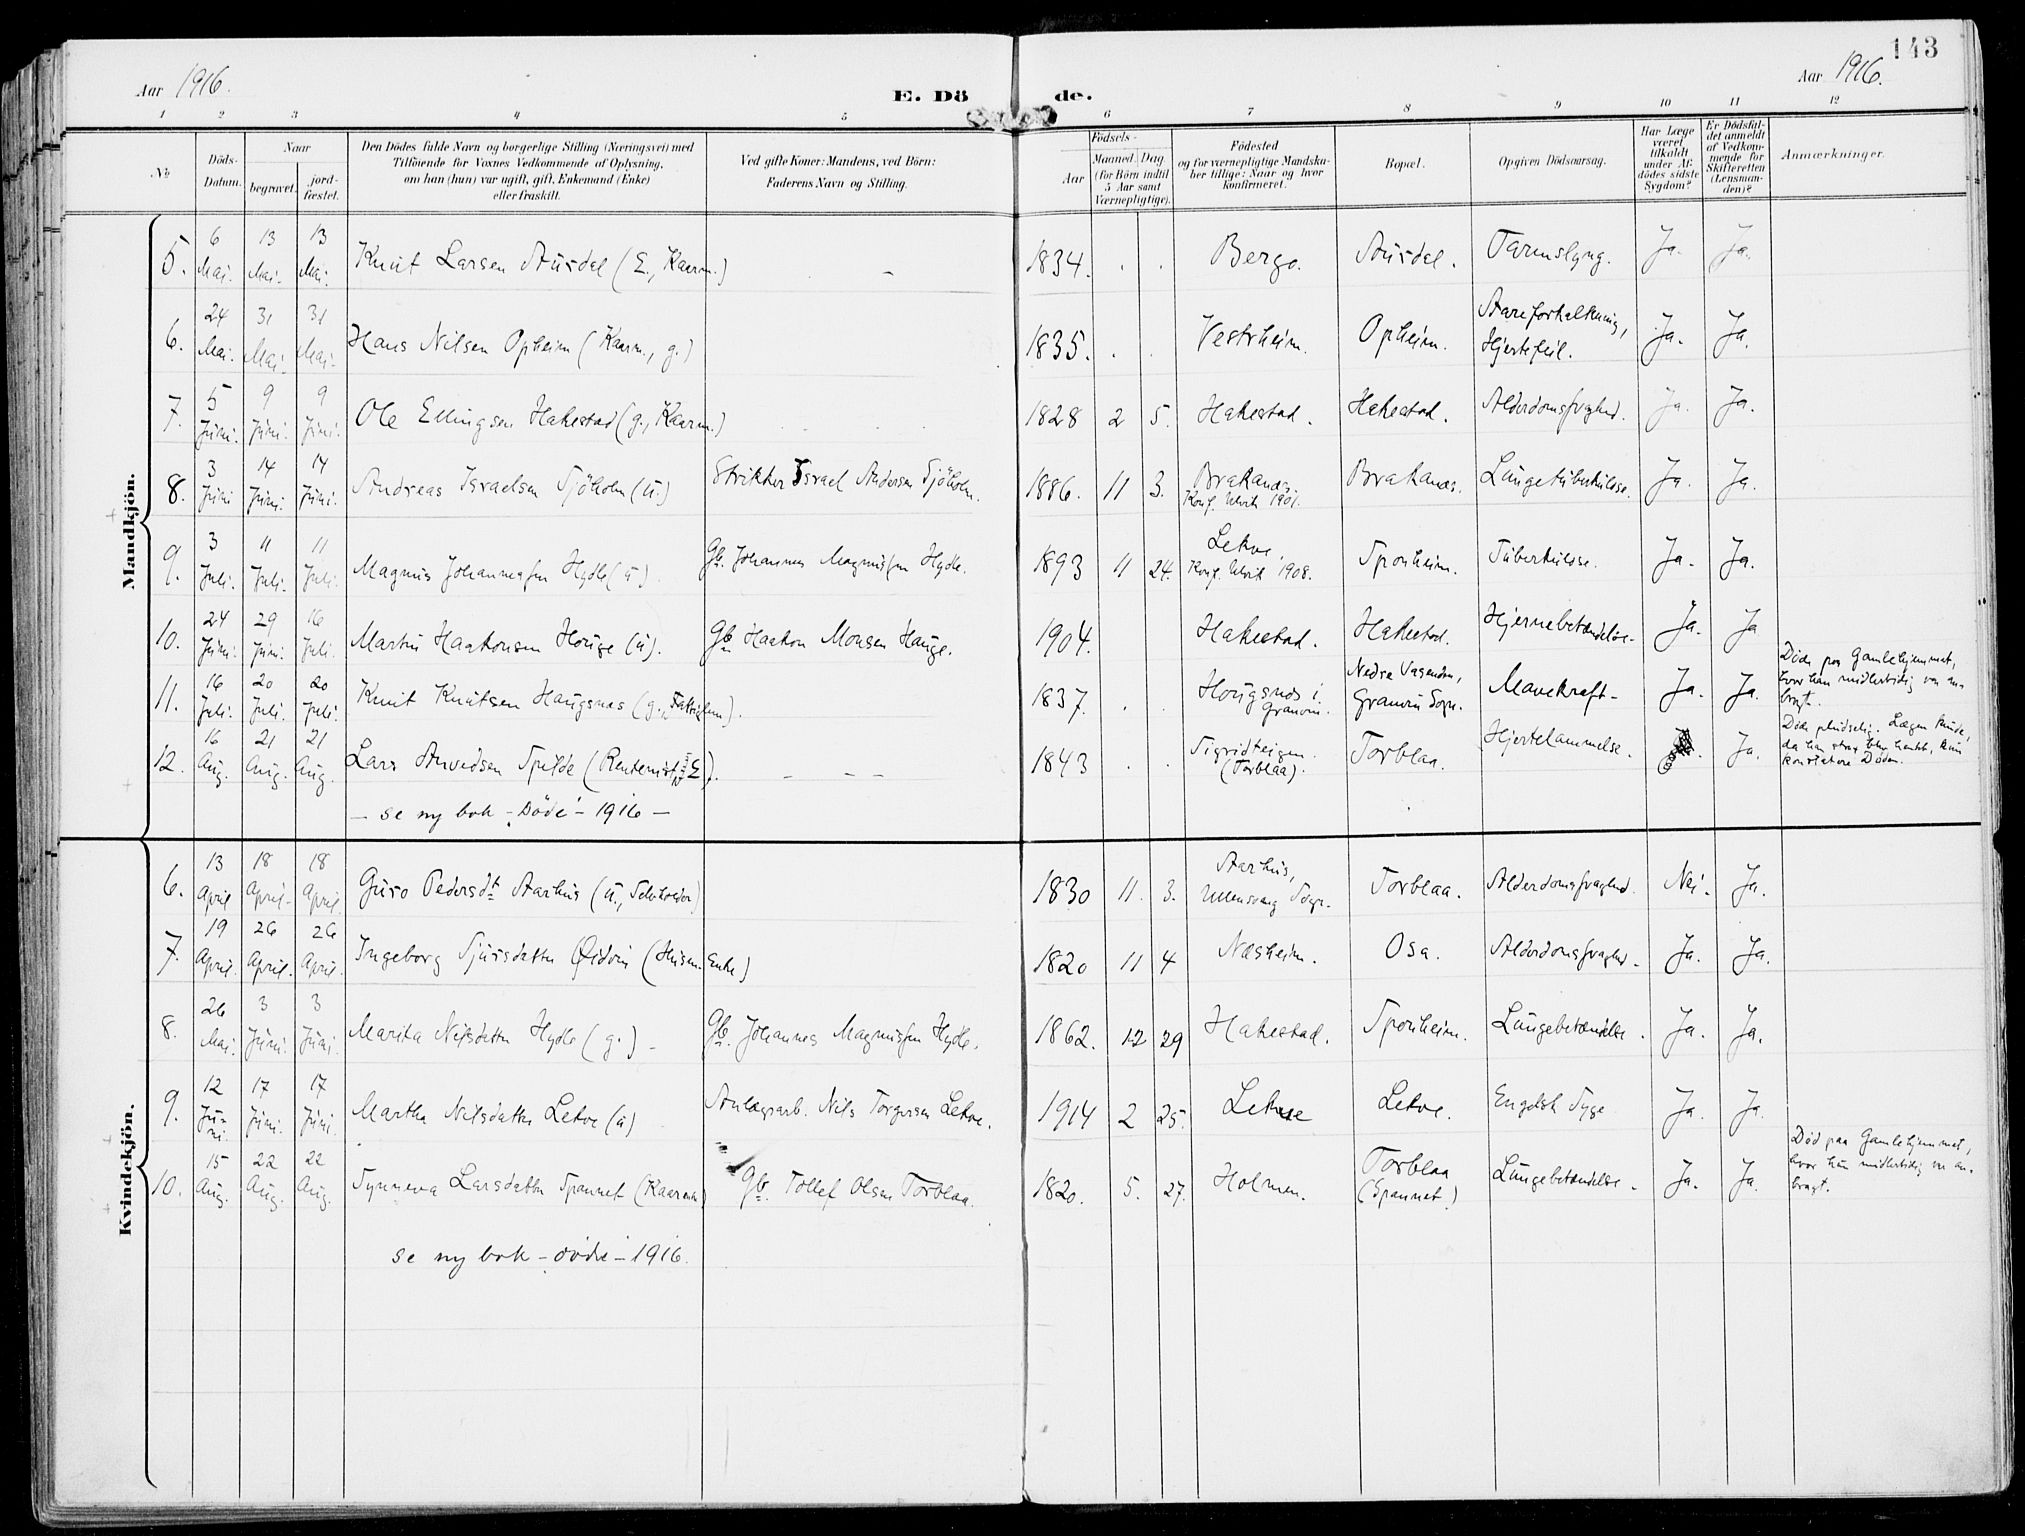 143
Aar 1916.
E. Döde.
Aar 1916.
1 2 3 4 5 6 7 8 9 10 11 12
№
Döds-Datum.
Naar
begravet.
jord-fæstet.
Den Dödes fulde Navn og borgerlige Stilling (Næringsvei) med
Tilföiende for Voxnes Vedkommende af Oplysning,
om han (hun) var ugift, gift, Enkemand (Enke)
eller fraskilt.
Ved gifte Koner: Mandens, ved Börn:
Faderens Navn og Stilling.
Födsels-
Aar
Maaned. Dag
(for Börn indtil
5 Aar samt
Værnepligtige).
Födested
og for værnepligtige Mandska-
ber tillige: Naar og hvor
konfirmeret.
Bopæl.
Opgiven Dödsaarsag.
Har Læge
været
tilkaldt
under Af-
dödes sidste
Sygdom?
Er Dödsfal-
det anmeldt
af Vedkom-
mende for
Skifteretten
(Lensman-
den)?
Anmærkninger.
Mandkjön.
5. 6 Mai. 13 Mai. 13 Mai. Knut Larsen Ausdal (E., Kaarm.) - 1834. Bergo. Ausdal. Tarmslyng. Ja. Ja.
6. 24 Mai. 31 Mai. 31 Mai. Hans Nilsen Opheim (Kaarm., g.) 1835. Vestrheim. Opheim. Aareforkalkning, Hjertefeil. Ja. Ja.
7. 5 Juni. 9 Juni. 9 Juni. Ole Ellingsen Hakestad (g., Kaarm.) 1828 2 5. Hakestad. Hakestad. Alderdomssvaghed. Ja. Ja.
8. 3 Juni 14 Juni. 14 Juni. Andreas Israelsen Sjöholm (u.) Strikker Israel Andersen Sjöholm. 1886. 11 3. Brakanæs. Konf. Ulvik 1901. Brakanæs. Lungetuberkulose. Ja. Ja.
9. 3 Juli. 11 Juli. 11 Juli. Magnus Johannessen Hydle (u). Gb. Johannes Magnussen Hydle. 1893 11 24. Lekve. Konf. Ulvik 1908. Sponheim. Tuberkulose. Ja. Ja.
10. 24 Juni. 29 Juni. 16 Juli. Martin Haakonsen Hauge (u). Gb Haakon Monsen Hauge. 1904. Hakestad. Hakestad. Hjernebetændelse. Ja. Ja
11. 16 Juli. 20 Juli. 20 Juli. Knut Knutsen Haugsnæs (g., Fattiglem). 1837. Haugsnæs i Granvin. Nedre Vasenden, Granvin Sogn. Mavekræft - Ja. Ja. Döde paa Gamlehjemmet, hvor han midlertidig var an-bragt.
12. 16 Aug. 21 Aug. 21 Aug. Lars Arvedsen Spilde (Rentenist, E.). - - - 1843 Sigridteigen (Torblaa). Torblaa. Hjertelammelse. Ja. Döde pludselig. Lægen kunde, da han strax blev hentet, kun konstatere Döden.
- se ny bok - Döde - 1916 -
Kvindekjön.
6. 13 April 18 April. 18 April. Guro Pedersdt. Aarhus (u., Selvforsör.) 1830 11. 3. Aarhus, Ullensvang Sogn. Torblaa. Alderdomssvaghed. Nei. Ja.
7. 19 April. 26 April. 26 April. Ingeborg Sjursdatter Øidvin (Husm. Enke) 1820 11 4 Næsheim. Osa. Alderdomssvaghed. Ja. Ja.
8. 26 Mai. 3 Juni. 3 Juni. Marita Nilsdatter Hydle (g.) - Gb. Johannes Magnussen Hydle. 1862. 12 29 Hakestad. Sponheim. Lungebetændelse. Ja. Ja.
9. 12 Juni. 17 Juni. 17 Juni. Martha Nilsdatter Lekve (u) Anlægsarb. Nils Torgersen Lekve. 1914 2 25. Lekve Lekve. Engelsk Syge Ja. Ja.
10. 15 Aug. 22 Aug. 22 Aug. Synneva Larsdatter Spannet (Kaarenke) Gb. Tollef Olsen Torblaa. 1820. 5. 27. Holmen. Torblaa (Spannet.) Lungebetændelse. Ja. Ja. Död paa Gamlehjemmet, hvor hun midlertidig var an-bragt.
se ny bok - döde - 1916.